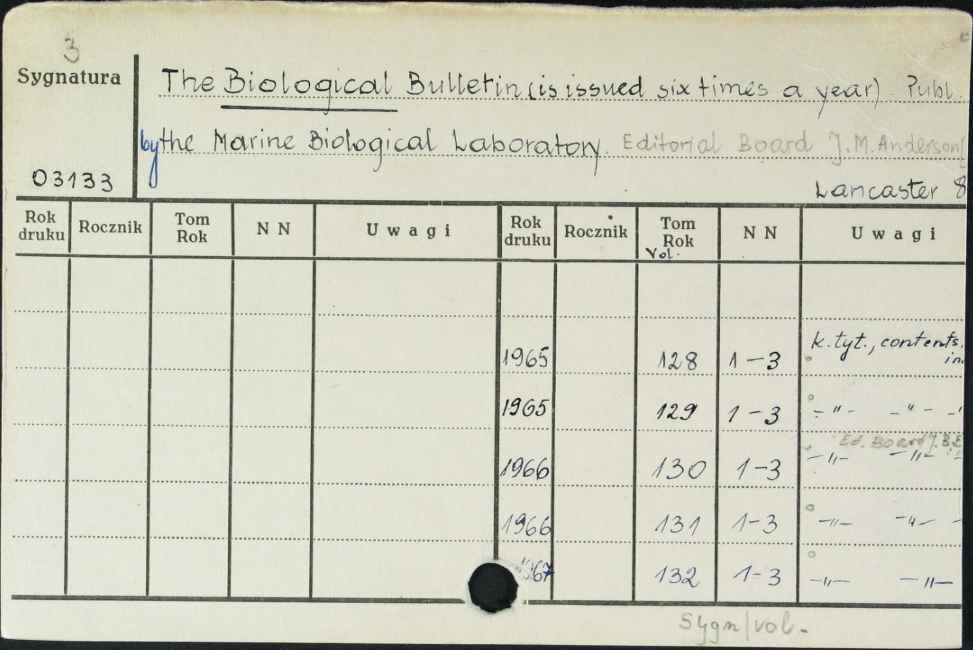 3
Sygnatura The Biological Bulletin (is issued six times a year). Publ.
by the Marine Biological Laboratory. Editorial Board J.M. Anderson
03133 Lancaster 8
Rok druku Rocznik Tom Rok N N Uwagi Rok druku Rocznik Tom Rok Vol. N N Uwagi
1965 128 1-3 k. tyt., contents,
in
1965 129 1-3 -"- -"- -"
Ed. Board J.B.E
1966 130 1-3 -"- -"-
1966 131 1-3 -"- -"-
1967 132 1-3 -"- -"-
Sygn/vol.